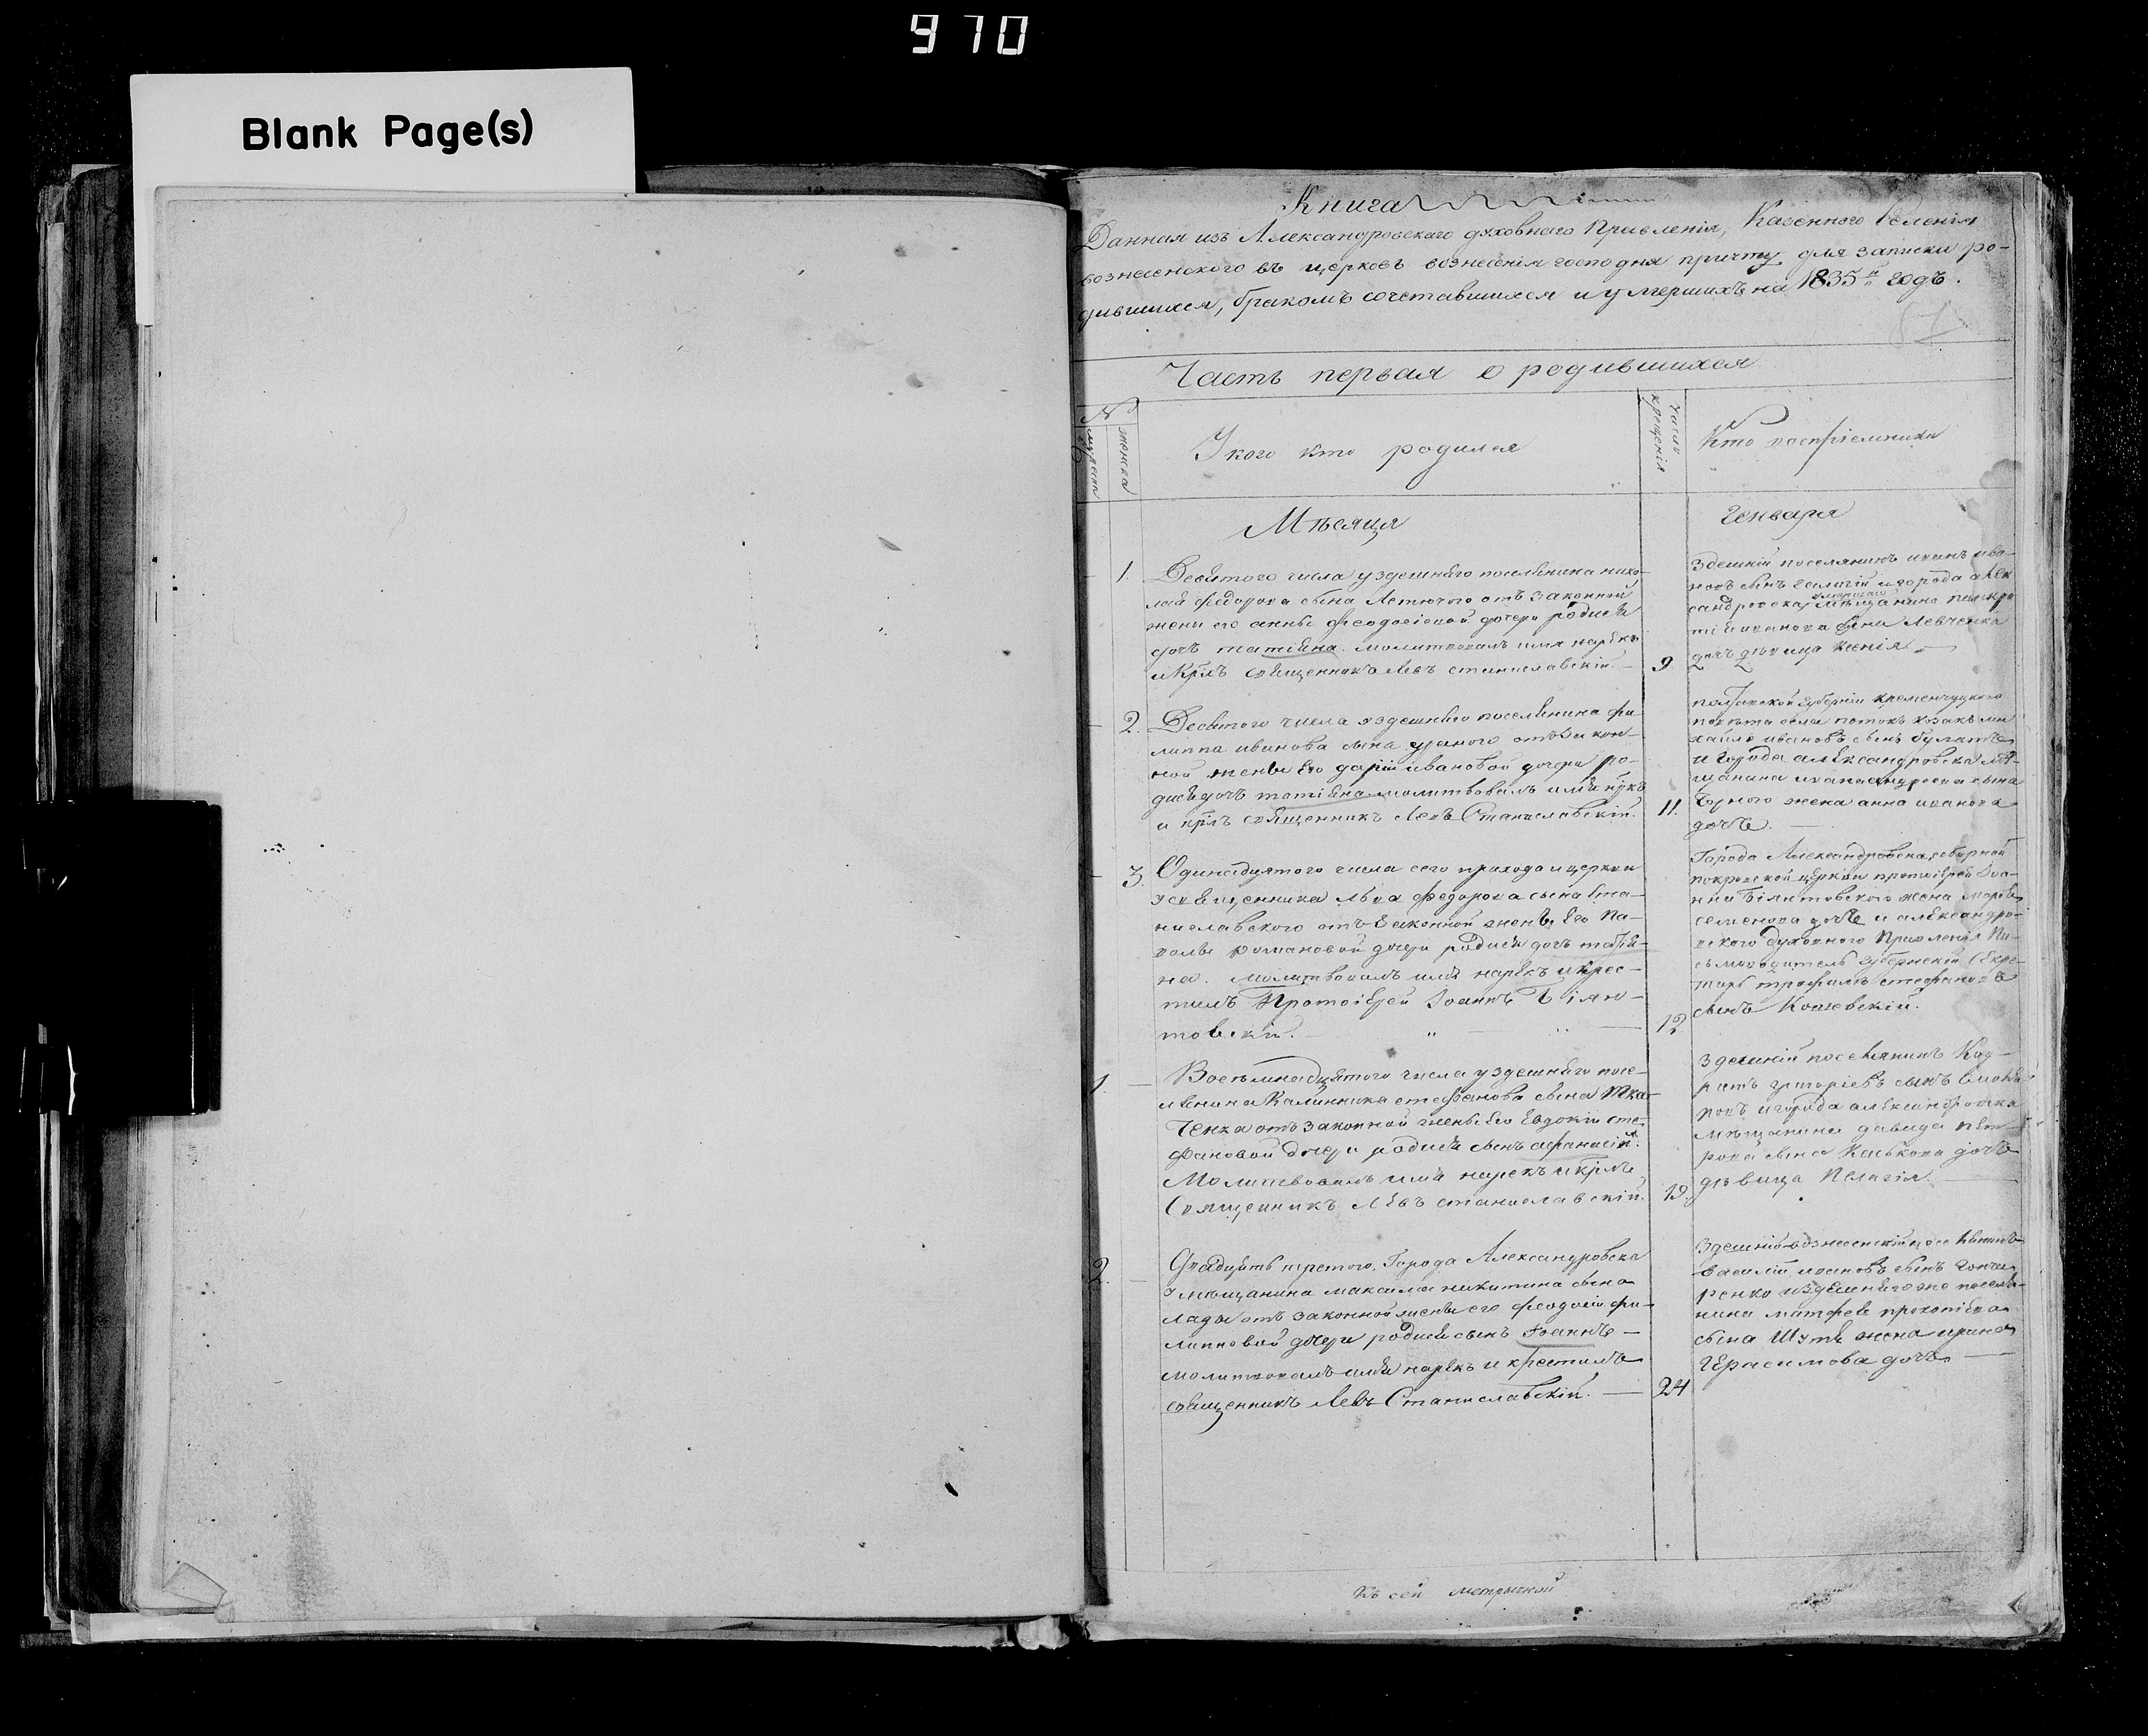 970
Blank Page(s)
Книга
Данная изъ Александровского духовнаго Правленія, Казенного Селенія
вознесенского въ церковь вознесенія господня причту для записки ро-
дившихся, бракомъ сочетавшихся и умершихъ на 1835й годъ.
Часть первая о родившихся
№
мужеска
женска
У кого кто родился
Число крещенія
Кто воспріемники
Мѣсяця
Генваря
1. Десятого числа у здешняго поселянина нико-
лая федорова сына Летючого отъ законной
жени его анны феодосіевой дочери родися
дочь татіяна. молитвовалъ имя нарекъ
и крілъ священникъ Левъ станиславскій.
9
здешній поселянинъ иванъ ива-
новъ сынъ и города алек
сандровска мѣщанина
иванова сына Левченка
дочь дѣвица ксенія
2. Десятого числа у здешняго поселянина фи-
липпа иванова сына отъ закон-
ной жены его даріи ивановой дочери ро-
дися дочь татіяна молитвовалъ имя нркъ
и крілъ священникъ Левъ Станиславскій.
11.
полтавской губерніи кременчуцкого
повѣта села потокъ козакъ ми
хайло ивановъ сынъ
и города александровска мѣ-
щанина ивана андреева сына
Чорного жена анна иванова
дочь.
3. Одинадцятого числа сего прихода и церкви
у священника льва федорова сына Ста-
ниславского отъ законной жены его Па-
волы романовой дочери родися дочь татія-
на. молитвовалъ имя нарекъ и крес-
тилъ Протоіерей Іоаннъ Білян-
товскій.
12
Города Александровска соборной
покровской церкви протоіерея Іоа-
нна жена марія
семенова дочь и александро-
вского духовного Правленія Пи-
сьмоводитель губернскій секре-
тарь трофимъ стефановъ
сынъ Кошевскій.
1. Восемнадцятого числа у здешняго посе-
лянина Калинника стефанова сына Тка-
ченка отъ законной жены его Евдокіи сте
фановой дочери родися сынъ афанасій.
Молитвовалъ имя нарекъ и крілъ
Священникъ Левъ станиславскій.
19.
здешній поселянинъ Код-
ратъ григоріевъ сынъ
и города александровска
мѣщанина давида пет-
рова сына Касьяна дочь
дѣвица Пелагія
2. Двадцять третого, Города Александровска
у мѣщанина максима никитина сына
лады отъ законной жены его феодосіи фи-
липповой дочери родися сынъ Іоаннъ
молитвовалъ имя нарекъ и крестилъ
священникъ Левъ Станиславскій.
24
здешній вознесенскій поселянинъ
василій ивановъ сынъ Гонча
ренко и здешняго же поселя-
нина матфея прокопіева
сына Шутя жена ирина
Герасимова дочь
Къ сей метрычной